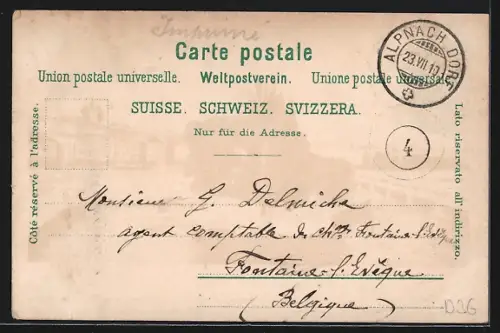 Imprimé
Carte postale
Union postale universelle. Weltpostverein. Unione postale universale
SUISSE. SCHWEIZ. SVIZZERA.
Nur für die Adresse.
ALPNACH DORF
23.VII.10
4
Côté réservé à l'adresse.
Lato riservato all'indirizzo.
Monsieur G. Delmiche
agent comptable de Fontaine-l'Evêque
Fontaine-l'Evêque
(Belgique)
D26